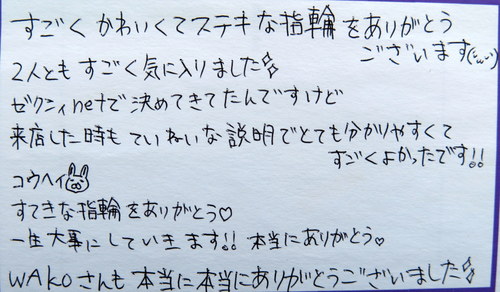 すごく かわいくてステキな指輪をありがとう
ございます(´ω`)
2人とも すごく気に入りました✨
ゼクシィnetで決めてきてたんですけど
来店した時も ていねいな説明でとても分かりやすくて
すごくよかったです!!
コウヘイ
すてきな指輪をありがとう♡
一生大事にしていきます!! 本当にありがとう♡
WAKOさんも本当に本当にありがとうございました✨